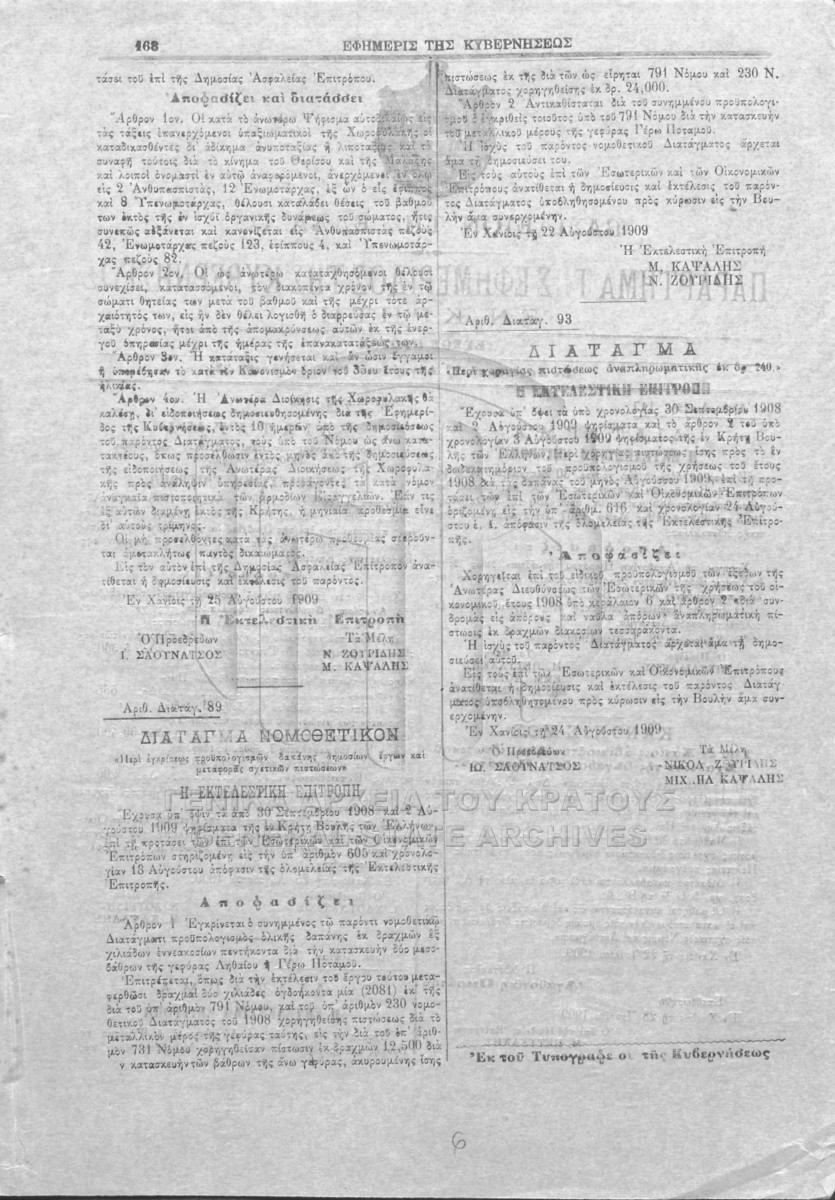 168
ΕΦΗΜΕΡΙΣ ΤΗΣ ΚΥΒΕΡΝΗΣΕΩΣ
τάσει τοῦ ἐπὶ τῆς Δημοσίας Ἀσφαλείας Ἐπιτρόπου.
Ἀποφασίζει καὶ διατάσσει
Ἄρθρον 1ον. Οἱ κατὰ τὸ ἀνωτέρω Ψήφισμα αὐτοδικαίως εἰς
τὰς τάξεις ἐπανερχόμενοι ὑπαξιωματικοὶ τῆς Χωροφυλακῆς οἱ
καταδικασθέντες δι' ἀδίκημα ἀνυποταξίας ἢ λιποταξίας καὶ τὰ
συναφῆ τούτοις διὰ τὸ κίνημα τοῦ Θερίσου καὶ τῆς
καὶ λοιποὶ ὀνομαστὶ ἐν αὐτῷ ἀναφερόμενοι, ἀνερχόμενοι ἐν ὅλῳ
εἰς 2 Ἀνθυπασπιστάς, 12 Ἐνωμοτάρχας, ἐξ ὧν ὁ εἷς ἔφιππος
καὶ 8 Ὑπενωμοτάρχας, θέλουσι καταλάβει θέσεις τοῦ βαθμοῦ
των ἐκτὸς τῆς ἐν ἰσχύϊ ὀργανικῆς δυνάμεως τοῦ σώματος, ἥτις
συνεπῶς αὐξάνεται καὶ κανονίζεται εἰς Ἀνθυπασπιστὰς πεζοὺς
42, Ἐνωμοτάρχας πεζοὺς 123, ἐφίππους 4, καὶ Ὑπενωμοτάρ-
χας πεζοὺς 82.
Ἄρθρον 2ον. Οἱ ὡς ἀνωτέρω καταταχθησόμενοι θέλουσι
συνεχίσει, κατατασσόμενοι, τὸν διακοπέντα χρόνον τῆς ἐν τῷ
σώματι θητείας των μετὰ τοῦ βαθμοῦ καὶ τῆς μέχρι τότε ἀρ-
χαιότητός των, εἰς ἣν δὲν θέλει λογισθῆ ὁ διαρρεύσας ἐν τῷ με-
ταξὺ χρόνος, ἤτοι ἀπὸ τῆς ἀπομακρύνσεως αὐτῶν ἐκ τῆς ἐνερ-
γοῦ ὑπηρεσίας μέχρι τῆς ἡμέρας τῆς ἐπανακατατάξεώς των.
Ἄρθρον 3ον. Ἡ κατάταξις γενήσεται καὶ ἂν ὦσιν ἔγγαμοι
ἢ ὑπερέβησαν τὸ κατὰ τὸν Κανονισμὸν ὅριον τοῦ 35ου ἔτους τῆς
ἡλικίας.
Ἄρθρον 4ον. Ἡ Ἀνωτέρα Διοίκησις τῆς Χωροφυλακῆς θὰ
καλέσῃ, δι' εἰδοποιήσεως δημοσιευθησομένης διὰ τῆς Ἐφημερί-
δος τῆς Κυβερνήσεως, ἐντὸς 10 ἡμερῶν ἀπὸ τῆς δημοσιεύσεως
τοῦ παρόντος Διατάγματος, τοὺς ὑπὸ τοῦ Νόμου ὡς ἄνω κατα-
τακτέους, ὅπως προσέλθωσιν ἐντὸς μηνὸς ἀπὸ τῆς δημοσιεύσεως
τῆς εἰδοποιήσεως τῆς Ἀνωτέρας Διοικήσεως τῆς Χωροφυλα-
κῆς πρὸς ἀνάληψιν ὑπηρεσίας, προσάγοντες τὰ κατὰ νόμον
ἀναγκαῖα πιστοποιητικὰ τῶν ἁρμοδίων Εἰσαγγελιῶν. Ἐάν τις
ἐξ αὐτῶν διαμένῃ ἐκτὸς τῆς Κρήτης, ἡ μηνιαία προθεσμία εἶνε
δι' αὐτοὺς τρίμηνος.
Οἱ μὴ προσελθόντες κατὰ τὰς ἀνωτέρω προθεσμίας στεροῦν-
ται ἀμετακλήτως παντὸς δικαιώματος.
Εἰς τὸν αὐτὸν ἐπὶ τῆς Δημοσίας Ἀσφαλείας Ἐπίτροπον ἀνα-
τίθεται ἡ δημοσίευσις καὶ ἐκτέλεσις τοῦ παρόντος.
Ἐν Χανίοις τῇ 25 Αὐγούστου 1909
Ἡ Ἐκτελεστικὴ Ἐπιτροπή
Ὁ Προεδρεύων Τὰ Μέλη
Ι. ΣΑΟΥΝΑΤΣΟΣ Ν. ΖΟΥΡΙΔΗΣ
Μ. ΚΑΨΑΛΗΣ
Ἀριθ. Διατάγ. 89
ΔΙΑΤΑΓΜΑ ΝΟΜΟΘΕΤΙΚΟΝ
«Περὶ ἐγκρίσεως προϋπολογισμῶν δαπάνης δημοσίων ἔργων καὶ
μεταφορᾶς σχετικῶν πιστώσεων»
Η ΕΚΤΕΛΕΣΤΙΚΗ ΕΠΙΤΡΟΠΗ
Ἔχουσα ὑπ' ὄψιν τὰ ἀπὸ 30 Σεπτεμβρίου 1908 καὶ 2 Αὐ-
γούστου 1909 ψηφίσματα τῆς ἐν Κρήτῃ Βουλῆς τῶν Ἑλλήνων
ἐπὶ τῇ προτάσει τῶν ἐπὶ τῶν Ἐσωτερικῶν καὶ τῶν Οἰκονομικῶν
Ἐπιτρόπων στηριζομένη εἰς τὴν ὑπ' ἀριθμὸν 605 καὶ χρονολο-
γίαν 13 Αὐγούστου ἀπόφασιν τῆς ὁλομελείας τῆς Ἐκτελεστικῆς
Ἐπιτροπῆς.
Ἀποφασίζει
Ἄρθρον 1 Ἐγκρίνεται ὁ συνημμένος τῷ παρόντι νομοθετικῷ
Διατάγματι προϋπολογισμὸς ὁλικῆς δαπάνης ἐκ δραχμῶν ἓξ
χιλιάδων ἐννεακοσίων πεντήκοντα διὰ τὴν κατασκευὴν δύο μεσο-
βάθρων τῆς γεφύρας Ληθαίου ἢ Γέρω Ποταμοῦ.
Ἐπιτρέπεται, ὅπως διὰ τὴν ἐκτέλεσιν τοῦ ἔργου τούτου μετα-
φερθῶσι δραχμαὶ δύο χιλιάδες ὀγδοήκοντα μία (2081) ἐκ τῆς
διὰ τοῦ ὑπ' ἀριθμὸν 791 Νόμου, καὶ τοῦ ὑπ' ἀριθμὸν 230 νομο-
θετικοῦ Διατάγματος τοῦ 1908 χορηγηθείσης πιστώσεως διὰ τὸ
μεταλλικὸν μέρος τῆς γεφύρας ταύτης, εἰς τὴν διὰ τοῦ ὑπ' ἀριθ-
μὸν 731 Νόμου χορηγηθεῖσαν πίστωσιν ἐκ δραχμῶν 12,500 διὰ
ν κατασκευὴν τῶν βάθρων τῆς ἄνω γεφύρας, ἀκυρουμένης ἴσης
πιστώσεως ἐκ τῆς διὰ τῶν ὡς εἴρηται 791 Νόμου καὶ 230 Ν.
Διατάγματος χορηγηθείσης ἐκ δρ. 24,000.
Ἄρθρον 2 Ἀντικαθίσταται διὰ τοῦ συνημμένου προϋπολογι-
σμοῦ ὁ ἐγκριθεὶς τοιοῦτος ὑπὸ τοῦ 791 Νόμου διὰ τὴν κατασκευὴν
τοῦ μεταλλικοῦ μέρους τῆς γεφύρας Γέρω Ποταμοῦ.
Ἡ ἰσχὺς τοῦ παρόντος νομοθετικοῦ Διατάγματος ἄρχεται
ἅμα τῇ δημοσιεύσει του.
Εἰς τοὺς αὐτοὺς ἐπὶ τῶν Ἐσωτερικῶν καὶ τῶν Οἰκονομικῶν
Ἐπιτρόπους ἀνατίθεται ἡ δημοσίευσις καὶ ἐκτέλεσις τοῦ παρόν-
τος Διατάγματος ὑποβληθησομένου πρὸς κύρωσιν εἰς τὴν Βου-
λὴν ἅμα συνερχομένην.
Ἐν Χανίοις τῇ 22 Αὐγούστου 1909
Ἡ Ἐκτελεστικὴ Ἐπιτροπή
Μ. ΚΑΨΑΛΗΣ
Ν. ΖΟΥΡΙΔΗΣ
Ἀριθ. Διαταγ. 93
ΔΙΑΤΑΓΜΑ
«Περὶ χορηγίας πιστώσεως ἀναπληρωματικῆς ἐκ δρ 240.»
Η ΕΚΤΕΛΕΣΤΙΚΗ ΕΠΙΤΡΟΠΗ
Ἔχουσα ὑπ' ὄψει τὰ ὑπὸ χρονολογίας 30 Σεπτεμβρίου 1908
καὶ 2 Αὐγούστου 1909 ψηφίσματα καὶ τὸ ἄρθρον 2 τοῦ ὑπὸ
χρονολογίαν 3 Αὐγούστου 1909 ψηφίσματος τῆς ἐν Κρήτῃ Βου-
λῆς τῶν Ἑλλήνων, περὶ χορηγίας πιστώσεως ἴσης πρὸς τὸ ἓν
δωδεκατημόριον τοῦ προϋπολογισμοῦ τῆς χρήσεως τοῦ ἔτους
1908 διὰ τὰς δαπάνας τοῦ μηνὸς Αὐγούστου 1909, ἐπὶ τῇ προ-
τάσει τῶν ἐπὶ τῶν Ἐσωτερικῶν καὶ Οἰκονομικῶν Ἐπιτρόπων
ὁριζομένῃ εἰς τὴν ὑπ' ἀριθμ. 616 καὶ χρονολογίαν 24 Αὐγού-
στου ἐ. ἔ. ἀπόφασιν τῆς ὁλομελείας τῆς Ἐκτελεστικῆς Ἐπιτρο-
πῆς.
Ἀποφασίζει
Χορηγεῖται ἐπὶ τοῦ εἰδικοῦ προϋπολογισμοῦ τῶν ἐξόδων τῆς
Ἀνωτέρας Διευθύνσεως τῶν Ἐσωτερικῶν τῆς χρήσεως τοῦ οἰ-
κονομικοῦ ἔτους 1908 ὑπὸ κεφάλαιον 6 καὶ ἄρθρον 2 «διὰ συν-
δρομὰς εἰς ἀπόρους καὶ ναῦλα ἀπόρων» ἀναπληρωματικὴ πί-
στωσις ἐκ δραχμῶν διακοσίων τεσσαράκοντα.
Ἡ ἰσχὺς τοῦ παρόντος Διατάγματος ἄρχεται ἅμα τῇ δημο-
σιεύσει αὐτοῦ.
Εἰς τοὺς ἐπὶ τῶν Ἐσωτερικῶν καὶ Οἰκονομικῶν Ἐπιτρόπους
ἀνατίθεται ἡ δημοσίευσις καὶ ἐκτέλεσις τοῦ παρόντος Διατάγ-
ματος ὑποβληθησομένου πρὸς κύρωσιν εἰς τὴν Βουλὴν ἅμα συν-
ερχομένην.
Ἐν Χανίοις τῇ 24 Αὐγούστου 1909
Ὁ Προεδρεύων Τὰ Μέλη
ΙΩ. ΣΑΟΥΝΑΤΣΟΣ ΝΙΚΟΛ. ΖΟΥΡΙΔΗΣ
ΜΙΧΑΗΛ ΚΑΨΑΛΗΣ
Ἐκ τοῦ Τυπογραφείου τῆς Κυβερνήσεως
ΓΕΝΙΚΑ ΑΡΧΕΙΑ ΤΟΥ ΚΡΑΤΟΥΣ
STATE ARCHIVES
6